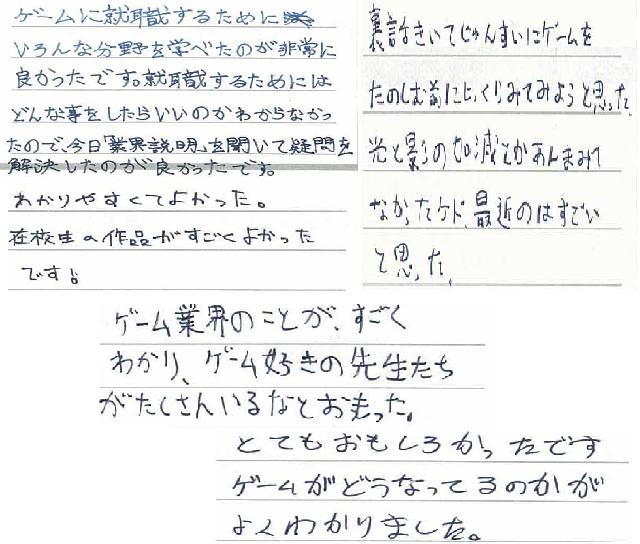 ゲームに就職するために
いろんな分野を学べたのが非常に
良かったです。就職するためには
どんな事をしたらいいのかわからなかっ
たので、今日「業界説明」を聞いて疑問を
解決したのが良かったです。
わかりやすくてよかった。
在校生の作品がすごくよかった
です!
裏話きいてじゅんすいにゲームを
たのしむ前にじっくりみてみようと思った。
光と影の加減とかあんまみて
なかったケド、最近のはすごい
と思った。
ゲーム業界のことが、すごく
わかり、ゲーム好きの先生たち
がたくさんいるなとおもった。
とてもおもしろかったです
ゲームがどうなってるのかが
よくわかりました。